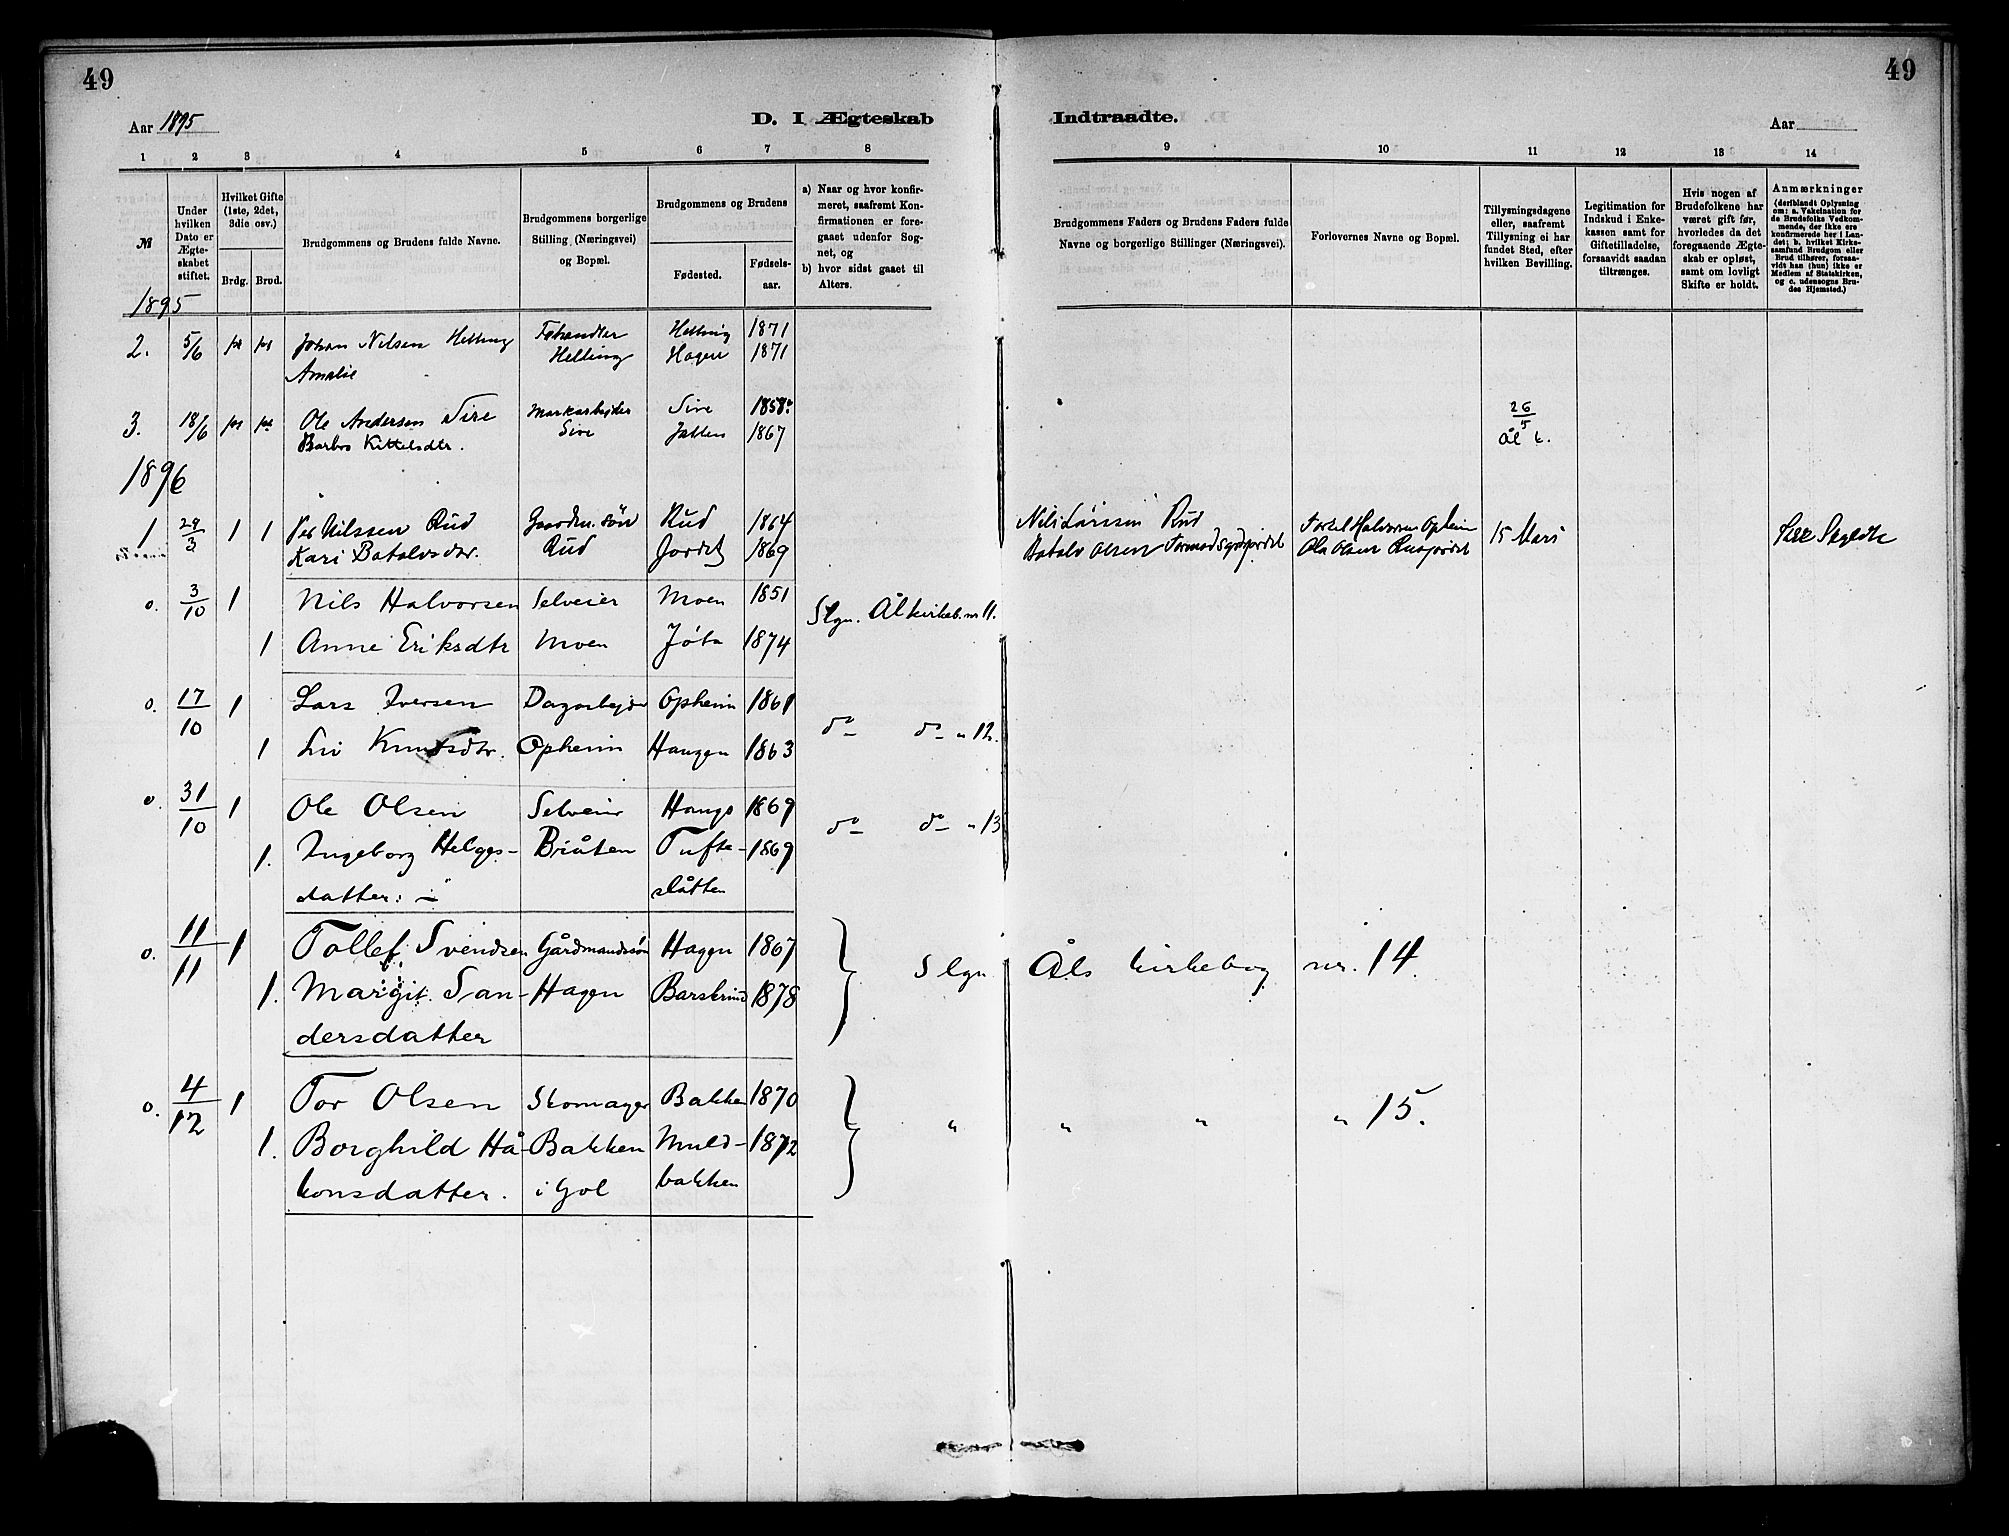 49
49
Aar 1895
D. I Ægteskab
Indtraadte.
Aar
1 2 3 4 5 6 7 8
9 10 11 12 13 14
№
Under hvilken Dato er Ægteskabet stiftet.
Hvilket Gifte (1ste, 2det, 3die osv.)
Brdg. Brud.
Brudgommens og Brudens fulde Navne.
Brudgommens borgerlige Stilling (Næringsvei) og Bopæl.
Brudgommens og Brudens
Fødested.
Fødselsaar.
a) Naar og hvor konfirmeret, saafremt Konfirmationen er foregaaet udenfor Sognet, og
b) hvor sidst gaaet til Alters.
Brudgommens Faders og Brudens Faders fulde Navne og borgerlige Stillinger (Næringsvei).
Forlovernes Navne og Bopæl.
Tillysningsdagene eller, saafremt Tillysning ei har fundet Sted, efter hvilken Bevilling.
Legitimation for Indskud i Enkekassen samt for Giftetilladelse, forsaavidt saadan tiltrænges.
Hvis nogen af Brudefolkene har været gift før, hvorledes da det foregaaende Ægteskab er opløst, samt om lovligt Skifte er holdt.
Anmærkninger (deriblandt Oplysning om: a. Vakcination for de Brudefolks Vedkommende, der ikke ere konfirmerede her i Landet; b. hvilket Kirkesamfund Brudgom eller Brud tilhører, forsaavidt han (hun) ikke er Medlem af Statskirken, og c. udensogns Brudes Hjemsted.)
1895
2. 5/6 Johan Nilsen Helling Fehandler Helling 1871
Amalie Helling Hagen 1871
3. 18/6 Ole Andersen Sire Markarbejder Sire 1858 26/5
Barbro Kittelsdtr. Sire 1867 Ål k.
1896
1 29/3 1 1 Per Nilssen Rud Gaardm. søn Rud 1864 Nils Larssen Rud Torkel Halvorsen Opheim 15 Mars
Kari Botolvsdtr. Rud Jordet 1869 Botolv Olsen Ola Olsen
o. 3/10 1 Nils Halvorsen Selveier Moen 1851 Slgn. Ål kirkeb. nr 11.
1 Anne Eriksdtr Moen Jøta 1874
o. 17/10 1 Lars Iversen Dagarbejder Opheim 1861 do do " 12.
1 Liv Knutsdtr. Opheim Haugen 1863
o. 31/10 1 Ole Olsen Selveier Haugo 1869 do do " 13
1. Ingeborg Helges- Bråten Tufte- 1869
datter: slåtten
o. 11/11 1 Tollef Svendsen Gårdmandssøn Hagen 1867 Slgn Åls kirkebog nr. 14.
1. Margit San- Hagen Barskrind 1878
dersdatter
o. 4/12 1 Tor Olsen Skomager Bakken 1870 " " " " 15.
1. Borghild Hå- Bakken Muld- 1872
konsdatter. i Gol bakken